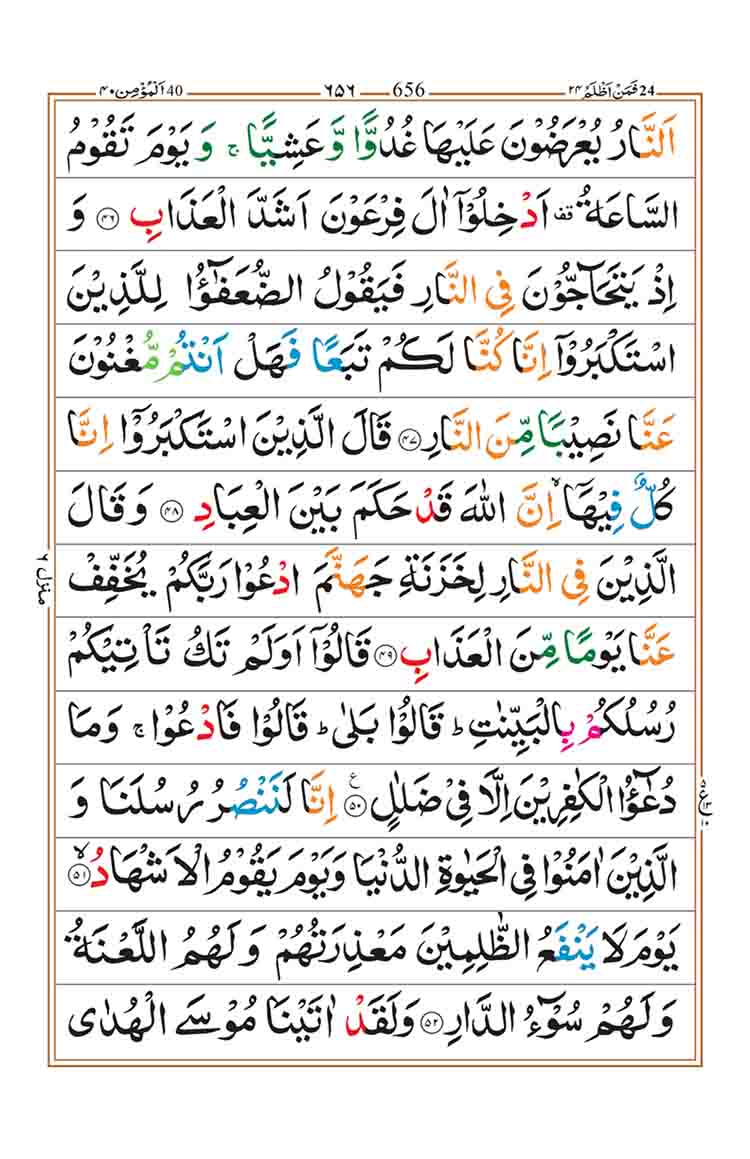 24 فَمَنْ اَظْلَمُ ٢٤ 656 ٦٥٦ 40 اَلْمُؤْمِن ٤٠
اَلنَّارُ يُعْرَضُوْنَ عَلَيْهَا غُدُوًّا وَّ عَشِيًّا ۚ وَ يَوْمَ تَقُوْمُ
السَّاعَةُ ۫ اَدْخِلُوْۤا اٰلَ فِرْعَوْنَ اَشَدَّ الْعَذَابِ ﴿٤٦﴾ وَ
اِذْ يَتَحَآجُّوْنَ فِي النَّارِ فَيَقُوْلُ الضُّعَفٰٓؤُا لِلَّذِيْنَ
اسْتَكْبَرُوْۤا اِنَّا كُنَّا لَكُمْ تَبَعًا فَهَلْ اَنْتُمْ مُّغْنُوْنَ
عَنَّا نَصِيْبًا مِّنَ النَّارِ ﴿٤٧﴾ قَالَ الَّذِيْنَ اسْتَكْبَرُوْۤا اِنَّا
كُلٌّ فِيْهَاۤ ۙ اِنَّ اللّٰهَ قَدْ حَكَمَ بَيْنَ الْعِبَادِ ﴿٤٨﴾ وَ قَالَ
الَّذِيْنَ فِي النَّارِ لِخَزَنَةِ جَهَنَّمَ ادْعُوْا رَبَّكُمْ يُخَفِّفْ
عَنَّا يَوْمًا مِّنَ الْعَذَابِ ﴿٤٩﴾ قَالُوْۤا اَوَلَمْ تَكُ تَاْتِيْكُمْ
رُسُلُكُمْ بِالْبَيِّنٰتِ ؕ قَالُوْا بَلٰى ؕ قَالُوْا فَادْعُوْا ۚ وَمَا
دُعٰٓؤُا الْكٰفِرِيْنَ اِلَّا فِيْ ضَلٰلٍ ﴿٥٠﴾ ع اِنَّا لَنَنْصُرُ رُسُلَنَا وَ
الَّذِيْنَ اٰمَنُوْا فِي الْحَيٰوةِ الدُّنْيَا وَيَوْمَ يَقُوْمُ الْاَشْهَادُ ﴿٥١﴾ ۙ
يَوْمَ لَا يَنْفَعُ الظّٰلِمِيْنَ مَعْذِرَتُهُمْ وَلَهُمُ اللَّعْنَةُ
وَلَهُمْ سُوْٓءُ الدَّارِ ﴿٥٢﴾ وَلَقَدْ اٰتَيْنَا مُوْسَى الْهُدٰى
منزل ٦